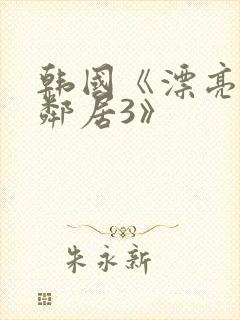 韩国《漂亮
邻居3》
朱永新